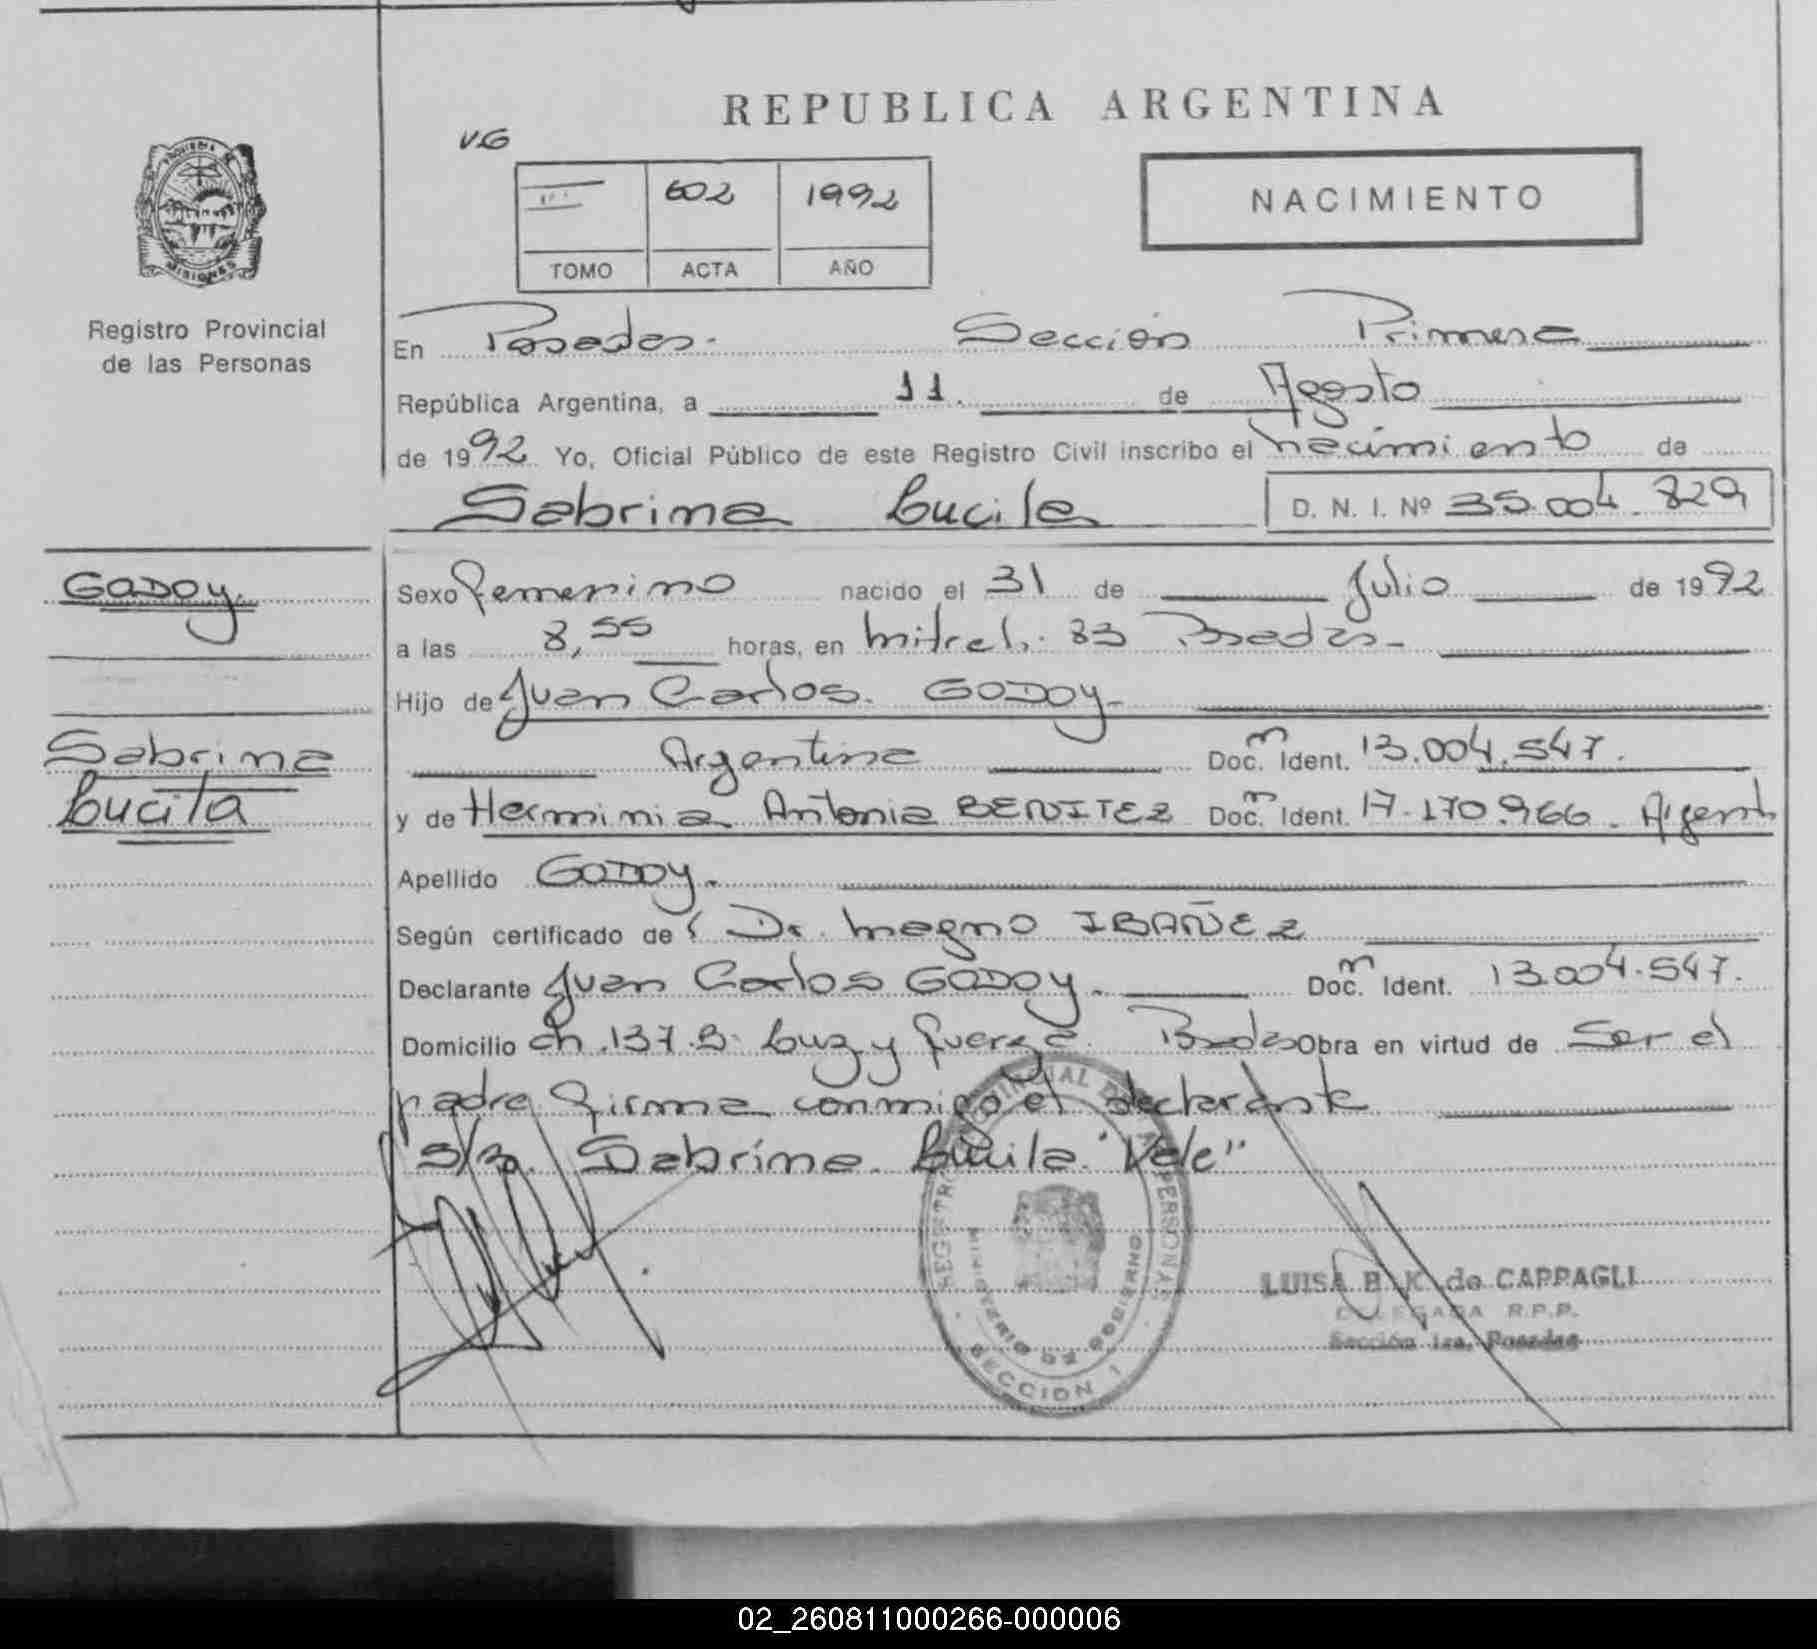 REPUBLICA ARGENTINA
V.G
602 1992
TOMO ACTA AÑO
NACIMIENTO
PROVINCIA DE
MISIONES
Registro Provincial
de las Personas
En Posadas. Sección Primera
República Argentina, a 11. de Agosto
de 1992 Yo, Oficial Público de este Registro Civil inscribo el nacimiento de
Sabrina Lucila D. N. I. Nº 35.004.829
GODOY.
Sexo femenino nacido el 31 de Julio de 1992
a las 8,55 horas, en Mitre 83 Posadas-
Hijo de Juan Carlos. GODOY-
Sabrina
Lucila
Argentina Doc. Ident. 13.004.547.
y de Herminia Antonia BENITEZ Doc. Ident. 17.170.966. Argent
Apellido GODOY.
Según certificado de Dr. Magno IBAÑEZ
Declarante Juan Carlos GODOY. Doc. Ident. 13.004.547.
Domicilio ch. 137. B. Luz y fuerza. Posadas Obra en virtud de Ser el
padre firma conmigo el declarante
Sabrina. Lucila "Vale"
REGISTRO PROVINCIAL DE LAS PERSONAS
MINISTERIO DE GOBIERNO
SECCION 1
LUISA B. K. de CAPPAGLI
DELEGADA R.P.P.
Sección 1ra. Posadas
02_260811000266-000006